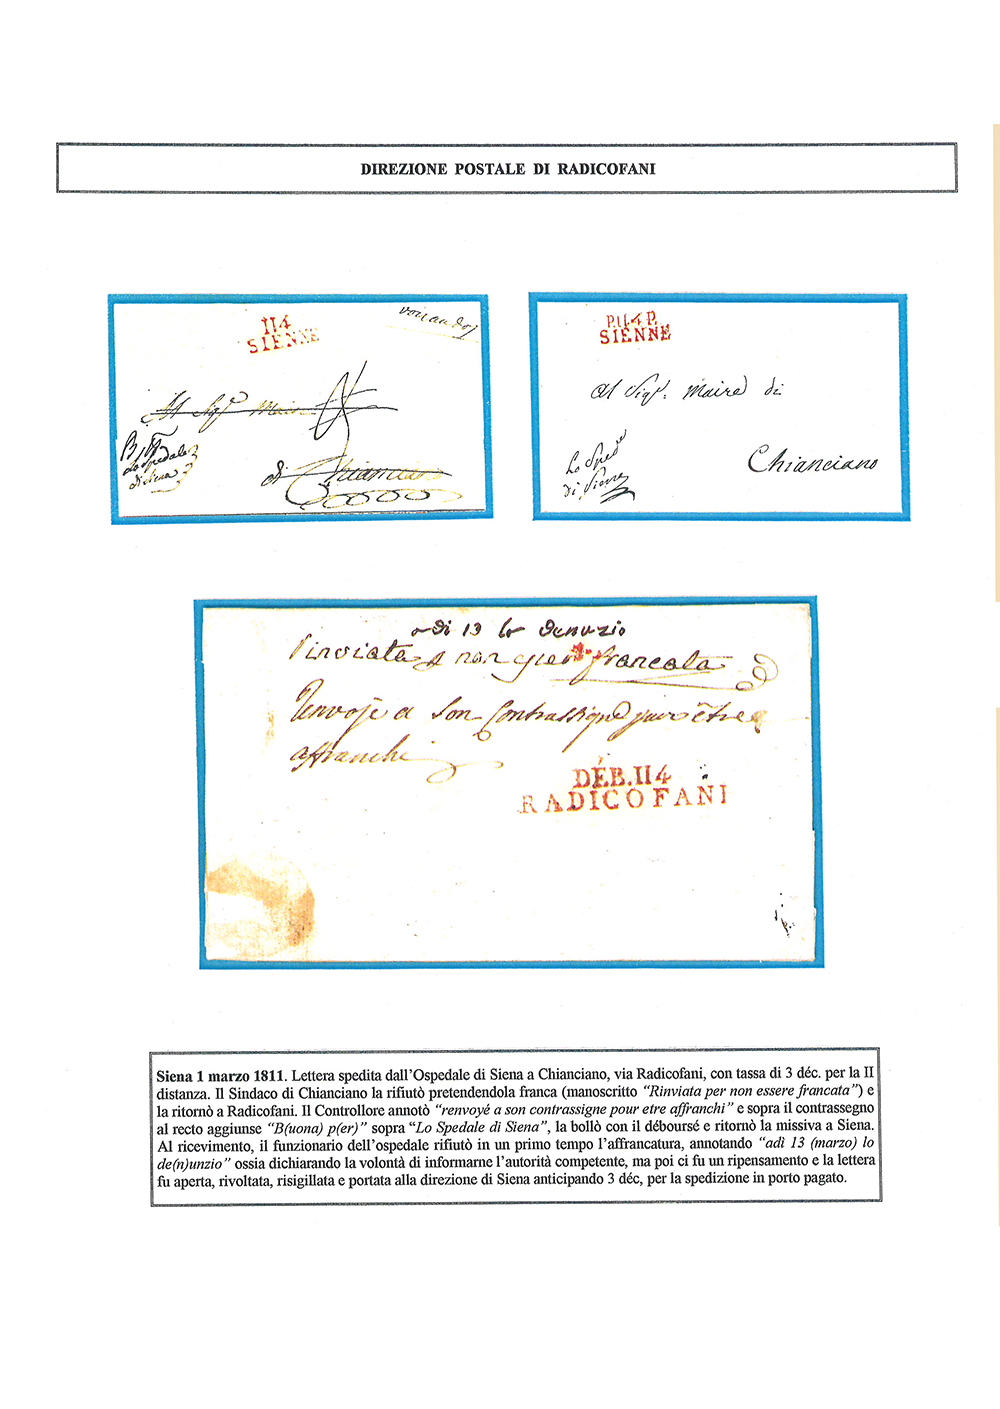 DIREZIONE POSTALE DI RADICOFANI
114
SIENNE
Al Sigr Maire
Lo Spedale
di Siena
di Chianciano
P.114.P.
SIENNE
Al Sigr. Maire di
Chianciano
Lo Sped
di Siena
adi 13 lo denuzio
Rinviata p non essere francata
Renvojé a son Contrassigne pour être
affranchi
DÉB.114
RADICOFANI
Siena 1 marzo 1811. Lettera spedita dall’Ospedale di Siena a Chianciano, via Radicofani, con tassa di 3 déc. per la II
distanza. Il Sindaco di Chianciano la rifiutò pretendendola franca (manoscritto “Rinviata per non essere francata”) e
la ritornò a Radicofani. Il Controllore annotò “renvoyé a son contrassigne pour etre affranchi” e sopra il contrassegno
al recto aggiunse “B(uona) p(er)” sopra “Lo Spedale di Siena”, la bollò con il déboursé e ritornò la missiva a Siena.
Al ricevimento, il funzionario dell’ospedale rifiutò in un primo tempo l’affrancatura, annotando “adì 13 (marzo) lo
de(n)unzio” ossia dichiarando la volontà di informarne l’autorità competente, ma poi ci fu un ripensamento e la lettera
fu aperta, rivoltata, risigillata e portata alla direzione di Siena anticipando 3 déc, per la spedizione in porto pagato.